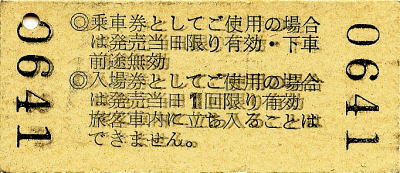 0641
◎乗車券としてご使用の場合
は発売当日限り有効・下車
前途無効
◎入場券としてご使用の場合
は発売当日1回限り有効
旅客車内に立ち入ることは
できません。
0641